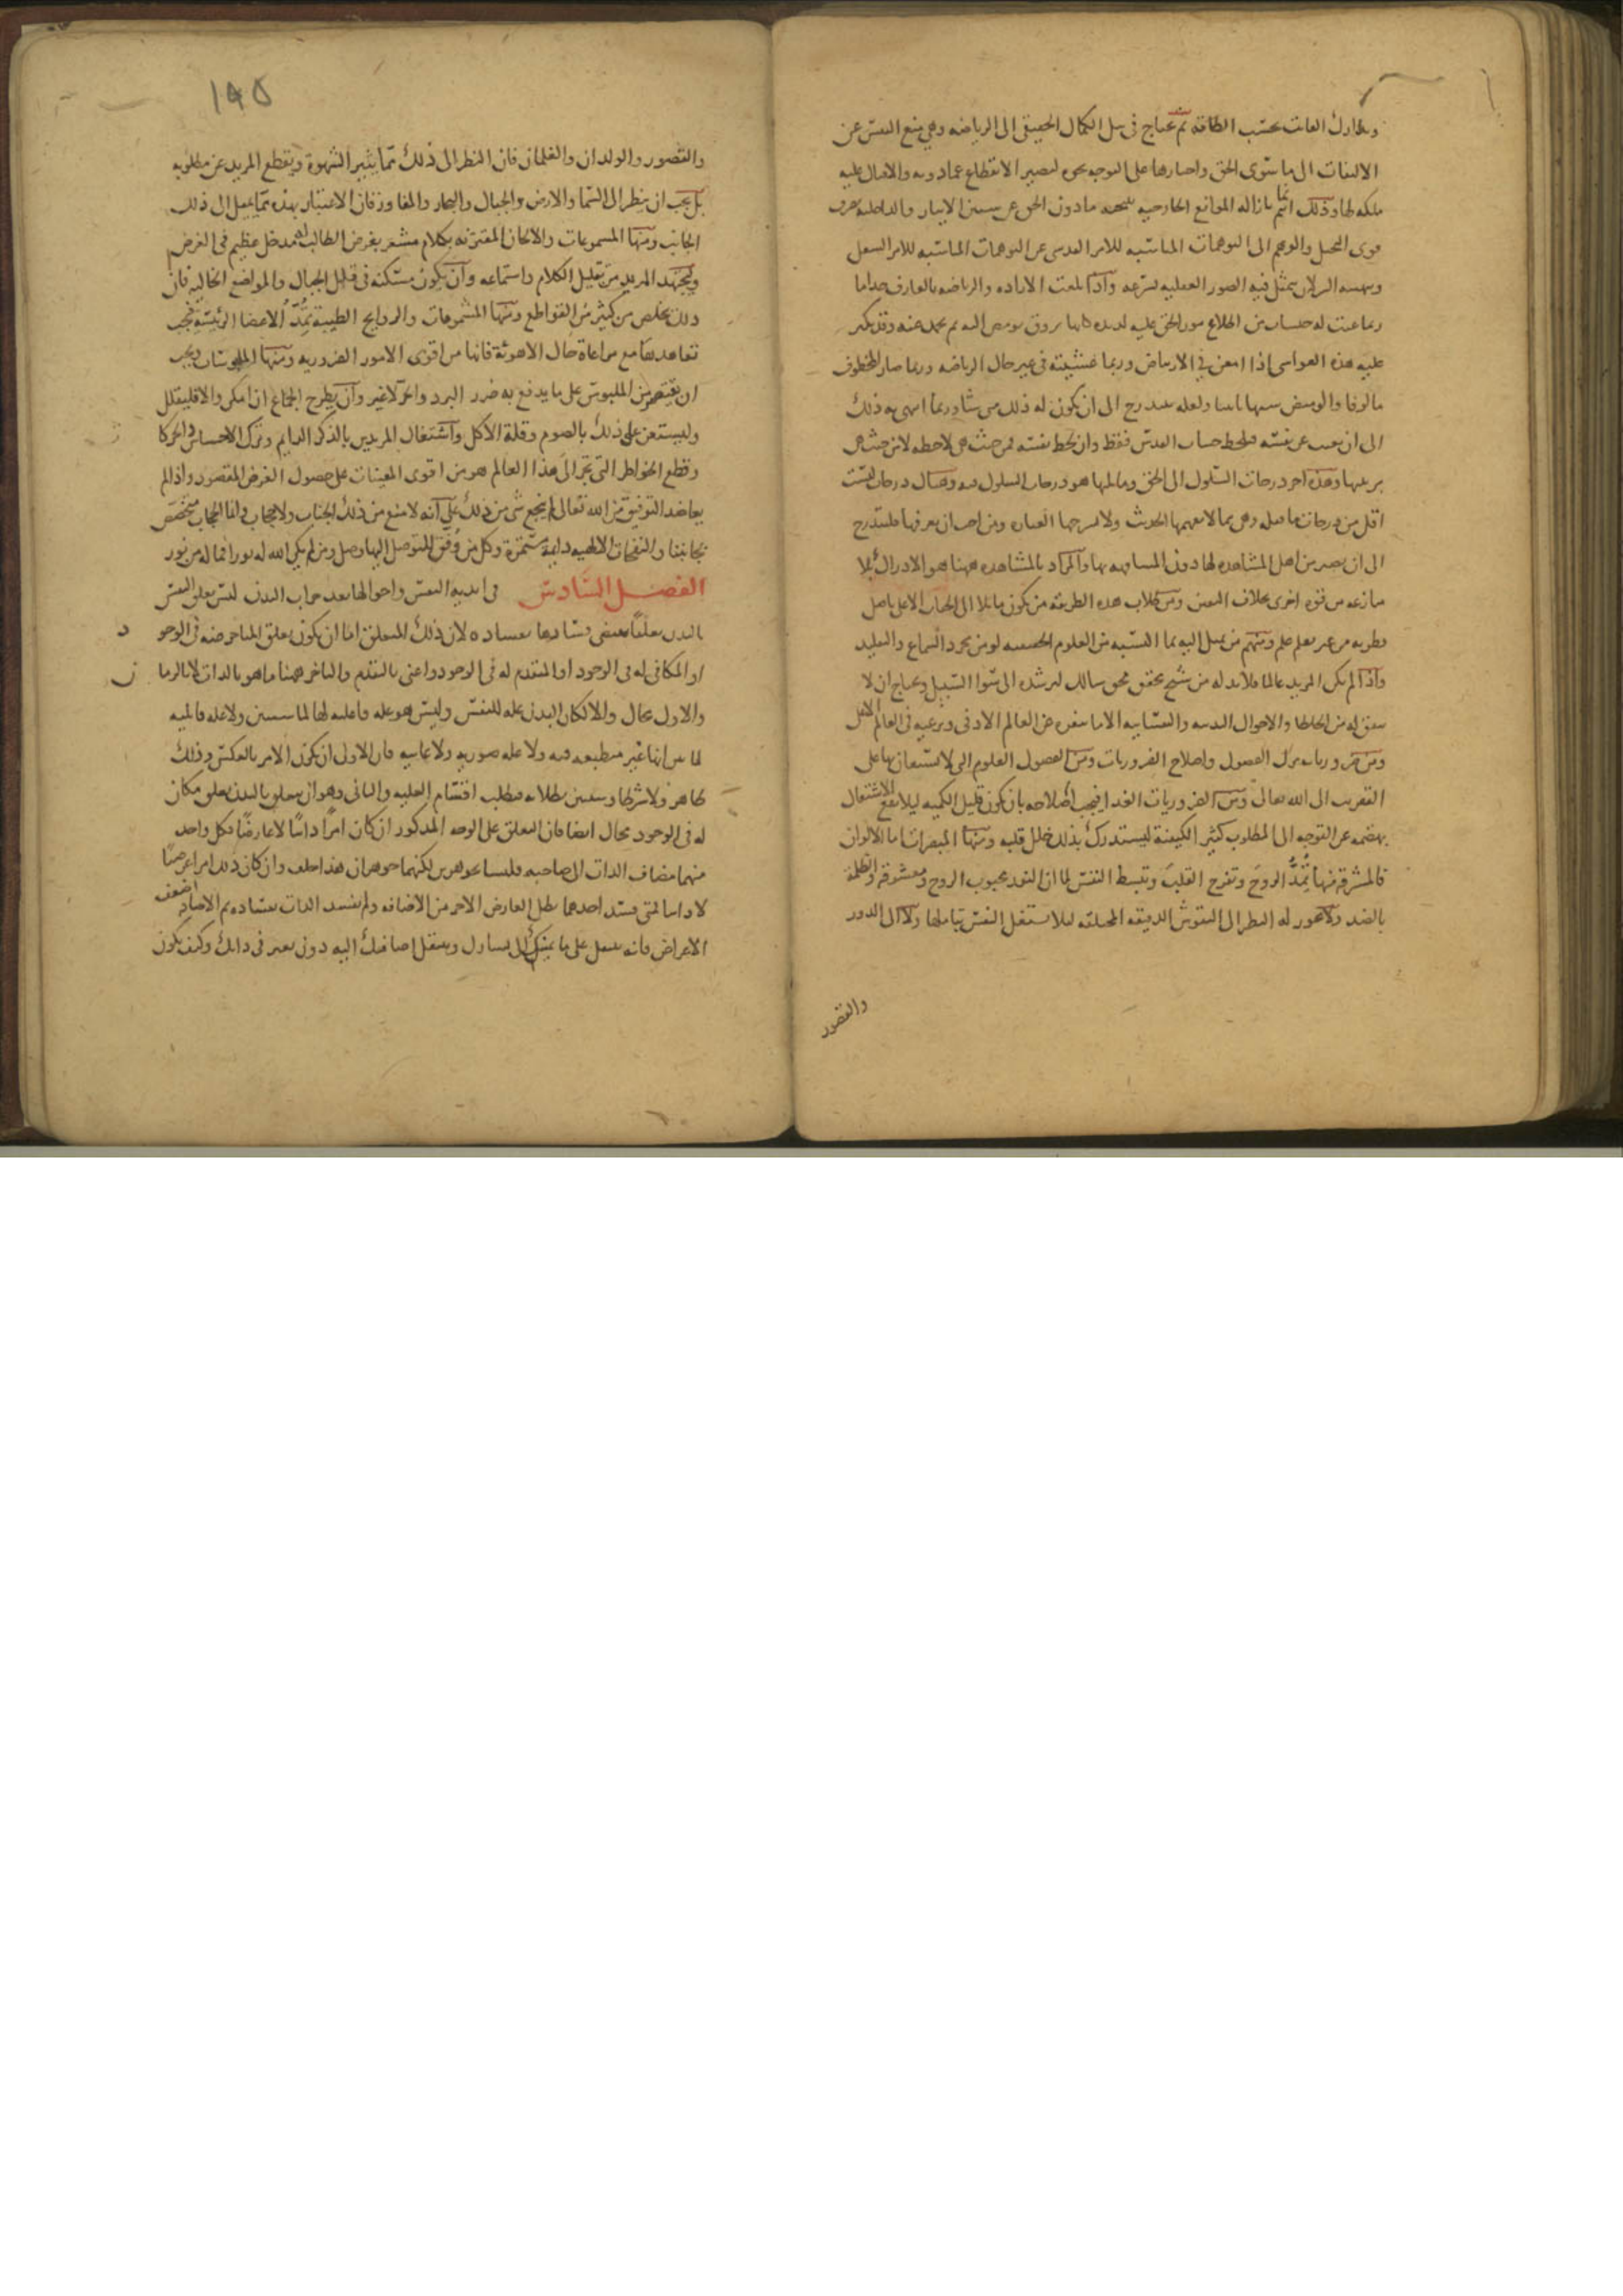 وتدارك الفائت بحسب الطاقة ثم يحتاج في نيل الكمال الحقيقي الى الرياضه وهي منع النفس عن
الالتفات الى ما سوى الحق واجبارها على التوجه نحوه ليصير الانقطاع عما دونه والاقبال عليه
ملكه لها وذلك انما يتم بازاله الموانع الخارجيه بتنحيه ما دون الحق عن سنن الايثار والداخليه بصرف
قوى التخيل والوهم الى التوهمات المناسبه للامر القدسي عن التوهمات المناسبه للامر السفلي
وبتهيئه السر لان يتمثل فيه الصور العقليه بسرعه واذا بلغت الاراده والرياضه بالعارف حدا ما
ربما عنت له خلسات من اطلاع نور الحق عليه لذيذه كانها بروق تومض اليه ثم تخمد عنه وقد تكثر
عليه هذه الغواشي اذا امعن في الارتياض وربما غشيته في غير حال الرياضه وربما صار المخطوف
مالوفا والوميض شهابا بينا ولعله يتدرج الى ان يكون له ذلك متى شاء وربما انتهى به ذلك
الى ان يغيب عن نفسه فيلحظ جناب القدس فقط وان لحظ نفسه فمن حيث هي لاحظه لا من حيث هي
بزينتها وهذه اخر درجات السلوك الى الحق وما يليها هو درجات السلوك فيه وهناك درجات ليست
اقل من درجات ما قبله وهي مما لا يفهمها الحديث ولا تشرحها العباره ومن احب ان يعرفها فليتدرج
الى ان يصير من اهل المشاهده لها دون المشافهه بها والمراد بالمشاهده ههنا هو الادراك بلا
منازعه من قوه اخرى بخلاف اليقين ومن طلاب هذه الطريقه من يكون مائلا الى الجناب الاعلى باصل
فطرته من غير تعلم علم ومنهم من يميل اليه بما اكتسبه من العلوم الحقيقيه لا من مجرد السماع والتقليد
واذا لم يكن المريد عالما فلا بد له من شيخ محقق محق سالك ليرشده الى سواء السبيل ويحتاج ان لا
يبقى له من الخلطا والاحوال البدنيه والنفسانيه الا ما ينفره عن العالم الادنى ويرغبه في العالم الاعلى
ومن ضرورياته ترك الفضول واصلاح الضروريات ومن الفضول العلوم التي لا يستعان بها على
التقرب الى الله تعالى ومن الضروريات الغذا فيجب اصلاحه بان يكون قليل الكميه ليلا يقع الاشتغال
بهضمه عن التوجه الى المطلوب كثير الكيفية ليستدرك بذلك خلل قلته ومنها المبصرات اما الالوان
فالمشرقه منها تُمِدُّ الروحَ وتفرح القلبَ وتبسط النفس لما ان النور محبوب الروح ومعشوقه والظلمة
بالضد ولا يجوز له النظر الى النقوش الدقيقه المختلفه ليلا تشتغل النفس بتاملها ولا الى الدور
والقصور
١٩٥
والقصور والولدان والغلمان فان النظر الى ذلك مما يثير الشهوة ويقطع المريد عن مطلوبه
بل يجب ان ينظر الى السما والارض والجبال والبحار والمفاوز فان الاعتبار بهذه مما يميل الى ذلك
الجانب ومنها المسموعات والالحان المقترنه بكلام مشعر بغرض الطالب له مدخل عظيم في الغرض
وليجتهد المريد من تقليل الكلام واستماعه وان يكون مسكنه في قلل الجبال والمواضع الخالية فان
ذلك يخلص من كثير من القواطع ومنها المشمومات والروايح الطيبة تُمِدُّ الاعضا الرئيسة فيجب
تعاهدها مع مراعاة حال الاهوئة فانها من اقوى الامور الضروريه ومنها الملبوسات ويجب
ان يقتصر من الملبوس على ما يدفع به ضرر البرد والحر لا غير وان يطرح الجماع ان امكن والا فليقلل
وليستعن على ذلك بالصوم وقلة الاكل واشتغال المريدين بالذكر الدايم وترك الاحساس والحركات
وقطع الخواطر التي تجر الى هذا العالم هو من اقوى المعينات على حصول الغرض المقصود واذا لم
يعاضد التوفيق من الله تعالى لم ينجع شي من ذلك على انه لا منع من ذلك الجناب ولا حجاب وانما الحجاب مختص
بجانبنا والنفحات الالهيه دايمة مستمرة وكل من وُفِّق للتوصل اليها وصل ومن لم يكن الله له نورا فما له من نور
الفصل السادس في ابدية النفس واحوالها بعد خراب البدن ليس تعلق النفس
بالبدن تعلقا يقتضي فسادها بفساده لان ذلك التعلق اما ان يكون تعلق المتاخر عنه في الوجود
او المكافي له في الوجود او المتقدم له في الوجود واعني بالتقدم والتاخر ههنا ما هو بالذات لا بالزمان
والاول محال والا لكان البدن عله للنفس وليس هو عله فاعليه لها لما سيبين ولا عله قابليه
لما بين انها غير منطبعه فيه ولا عله صوريه ولا غاييه فان الاولى ان يكون الامر بالعكس وذلك
ظاهر ولا شرطا وسيبين بطلانه فبطلت اقسام العليه والثاني وهو ان يتعلق بالبدن تعلق مكاف
له في الوجود محال ايضا فان التعلق على الوجه المذكور ان كان امرًا ذاتيًا لا عارضًا فكل واحد
منهما مضاف الذات الى صاحبه فليسا بجوهرين لكنهما جوهران هذا خلف وان كان ذلك امرا عرضيًا
لا ذاتيا فمتى فسد احدهما بطل العارض الاخر من الاضافه ولم تفسد الذات بفساده ثم الاضافه اضعف
الاعراض فانه ينتقل على ما يمينك الى يسارك وتنتقل اضافتك اليه دون تغير في ذاتك وكيف يكون